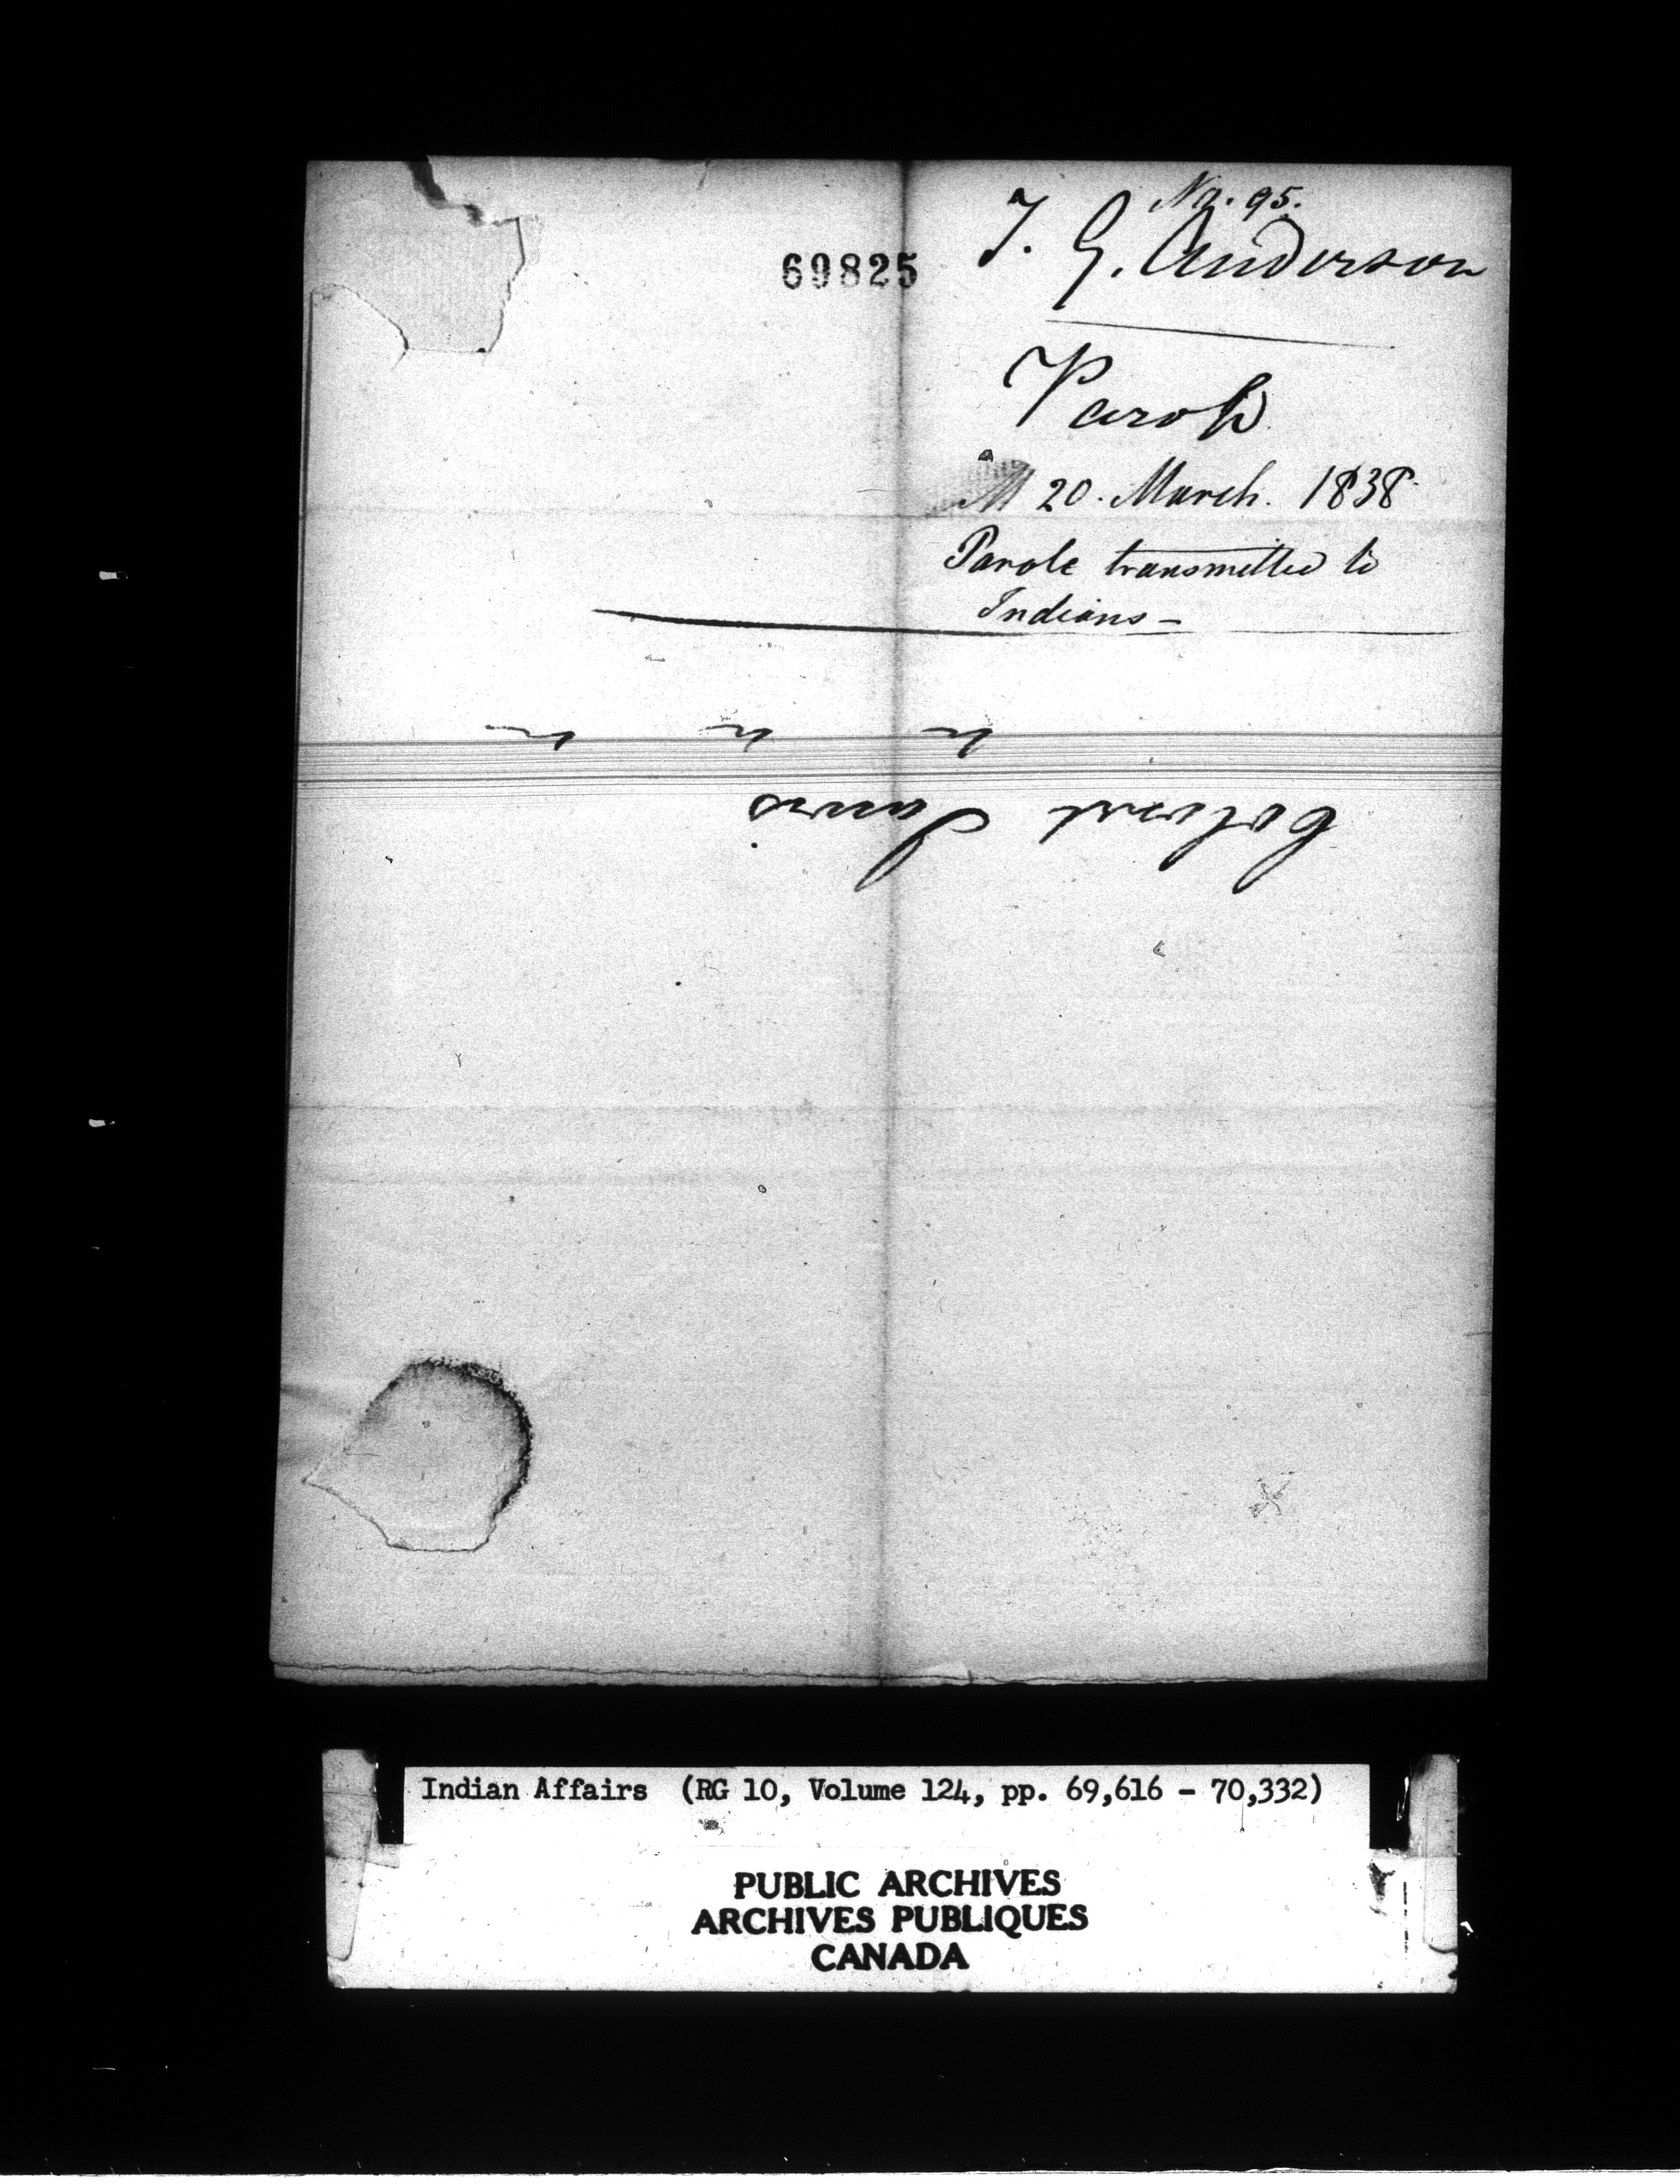 No. 95.
69825
T. G. Anderson
Parole
20. March. 1838
Parole transmitted to
Indians —
" " "
Colonel Jarvis
Indian Affairs (RG 10, Volume 124, pp. 69,616 - 70,332)
PUBLIC ARCHIVES
ARCHIVES PUBLIQUES
CANADA